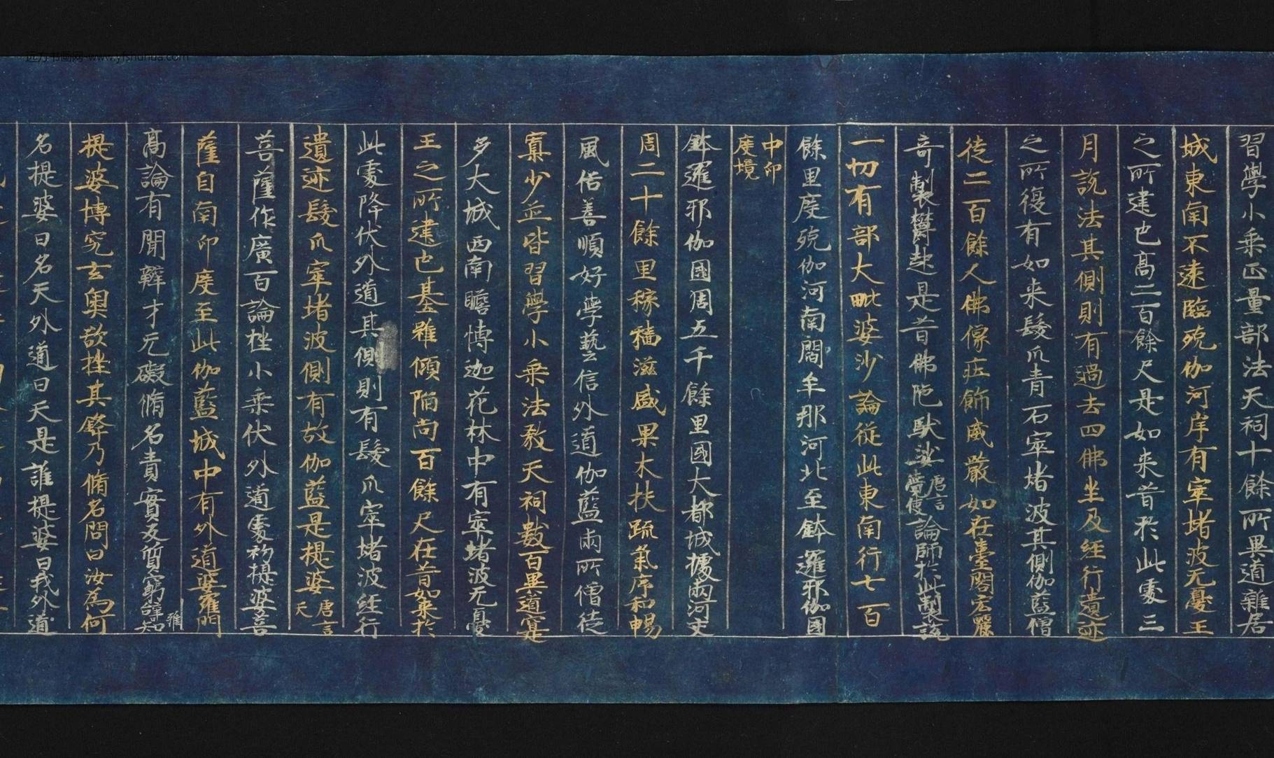 習學小乘正量部法天祠十餘所異道雜居
城東南不遠臨殑伽河岸有窣堵波无憂王
之所建也高二百餘尺是如来昔於此處三
月說法其側則有過去四佛坐及経行遺迹
之所復有如来髮爪青石窣堵波其側伽藍僧
徒二百餘人佛像莊飾威嚴如在臺閣宏麗
奇製欝起是昔佛陁馱娑唐言覺使論師於此製說
一切有部大毗婆沙論従此東南行七百
餘里度殑伽河南閻牟那河北至鉢邏耶伽國
中印度境
鉢邏耶伽國周五千餘里國大都城據兩河交
周二十餘里稼穡滋盛果木扶疏氣序和暢
風俗善順好學藝信外道伽藍兩所僧徒
寡少並皆習學小乘法教天祠數百異道寔
多大城西南瞻博迦花林中有窣堵波无憂
王之所建也基雖傾陷尚百餘尺在昔如来於
此處降伏外道其側則有髮爪窣堵波経行
遺迹髮爪窣堵波側有故伽藍是提婆唐言天
菩薩作廣百論挫小乘伏外道處初提婆菩
薩自南印度至此伽藍城中有外道婆羅門
高論有聞辯才无礙脩名責實反質窮辞雅知
提婆博究玄奥欲挫其鋒乃脩名問曰汝為何
名提婆曰名天外道曰天是誰提婆曰我外道